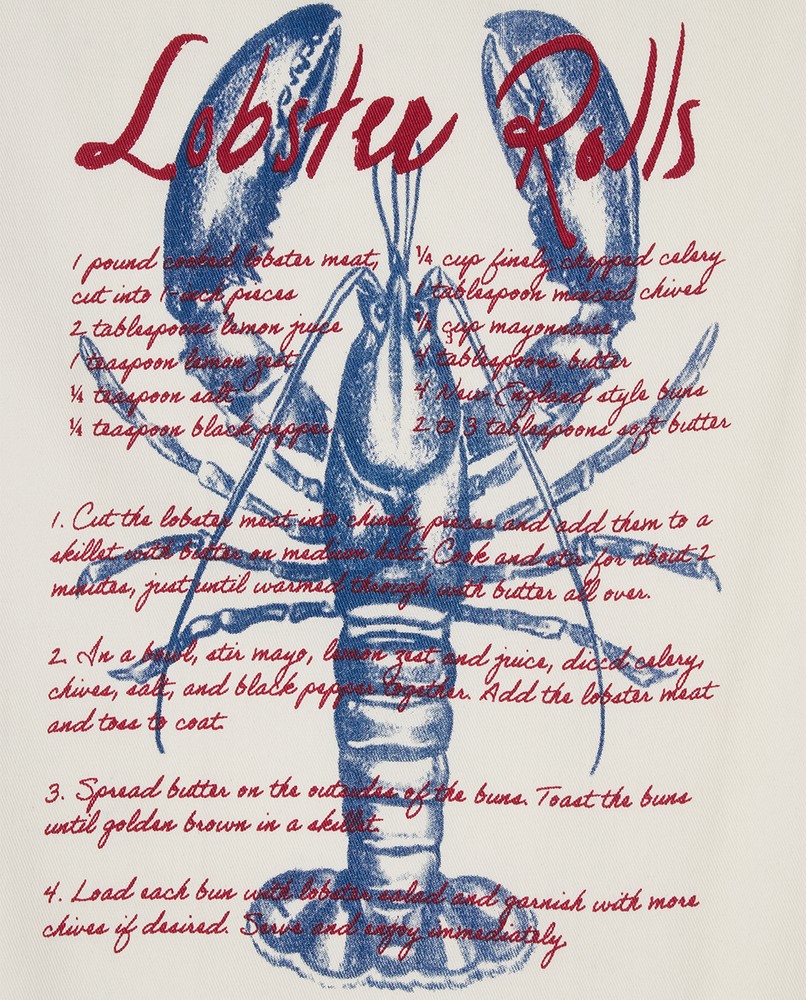 Lobster Rolls
1 pound cooked lobster meat,
cut into 1-inch pieces
2 tablespoons lemon juice
1 teaspoon lemon zest
¼ teaspoon salt
¼ teaspoon black pepper
¼ cup finely chopped celery
1 tablespoon minced chives
¼ cup mayonnaise
4 tablespoons butter
4 New England style buns
2 to 3 tablespoons soft butter
1. Cut the lobster meat into chunky pieces and add them to a
skillet with butter on medium heat. Cook and stir for about 2
minutes, just until warmed through with butter all over.
2. In a bowl, stir mayo, lemon zest and juice, diced celery,
chives, salt, and black pepper together. Add the lobster meat
and toss to coat.
3. Spread butter on the outsides of the buns. Toast the buns
until golden brown in a skillet.
4. Load each bun with lobster salad and garnish with more
chives if desired. Serve and enjoy immediately